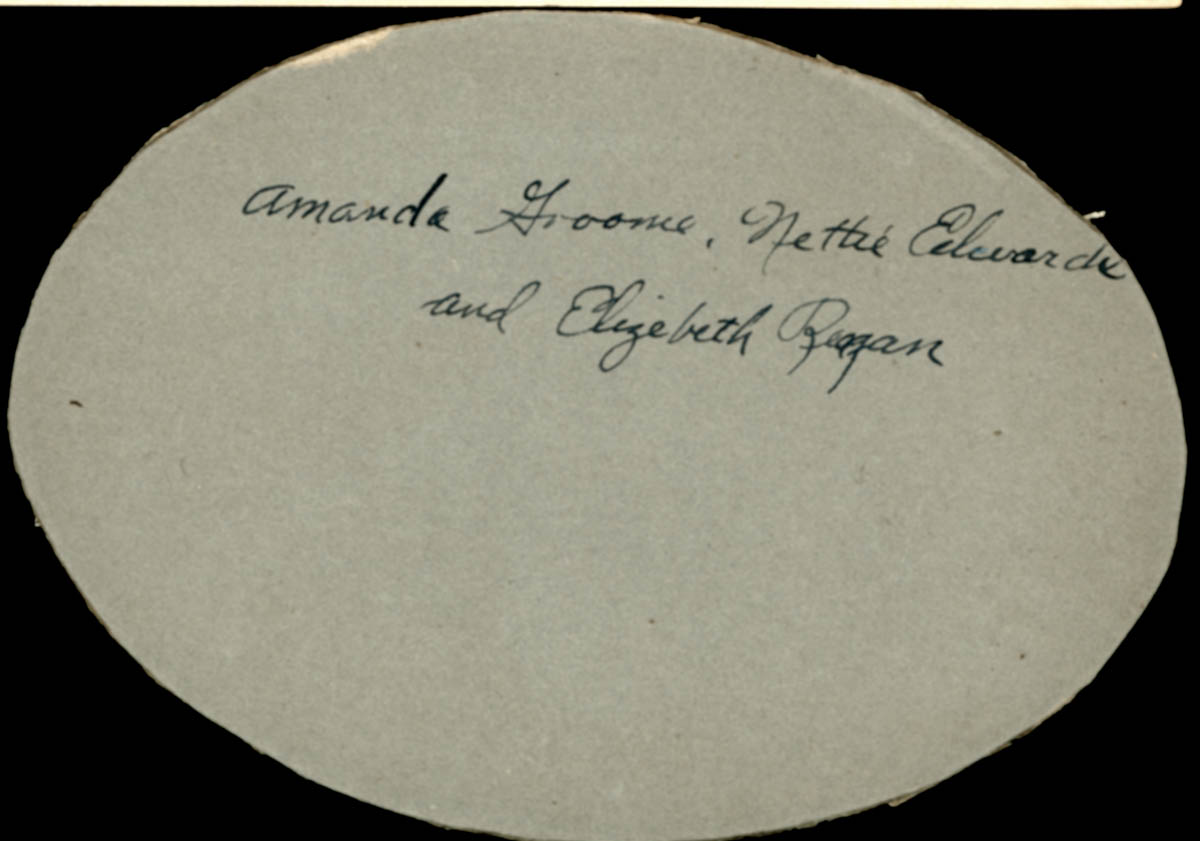 Amanda Groome, Nettie Edwards
and Elizebeth Regan